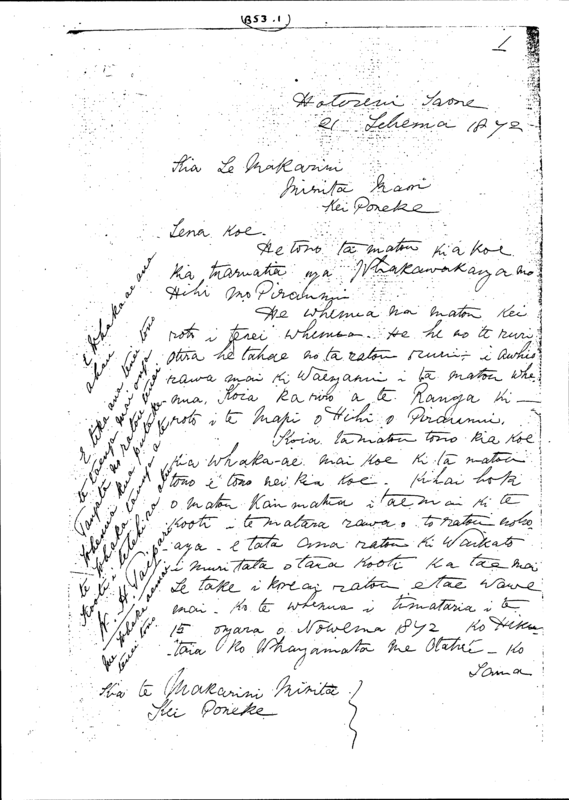 B53.1
1
Hotereni Taone
21 Tihema 1872
Kia Te Makarini
Minita Maori
Kei Poneke
Tena Koe.
He tono ta matou kia koe
kia tuaruatia nga Whakawakanga mo
Hihi mo Piraunui
He whenua na matou kei
roto i tenei whenua. He he no te ruri
otira he tahae no ta ratou ruuri i awhio
rawa mai ki i ta matou whe
nua, Koia ka riro a te Ranga ki
roto i te Mapi o Hihi o Piraunui,
Koia ta matou tono kia koe
kia whaka-ae mai koe ki ta matou
tono i tono nei kia koe. Kihai hoki
o matou Kaumatua i tae mai ki te
Kooti - te matara rawa o to ratou noho
anga. e tata ana ratou ki Waikato
i muri tata o tara Kooti ka tae mai
Te take i kore ai ratou e tae wawe
mai. Ko te whenua i timataria i te
15 o nga ra o Nowema 1872 Ko Hiku
taia ko Whangamata me Otahu - Ko
Tama
Kia te Makarini Minita
Kei Poneke
E Whakaae ana
ahau
E tika ana tenei tono
te taenga mai o nga
Tangata no ratou tenei
whenua kua putake
te Whakataunga a te
Kooti i tetehi ra atu
W. H. Taipari
me whakaae mai
tenei tono